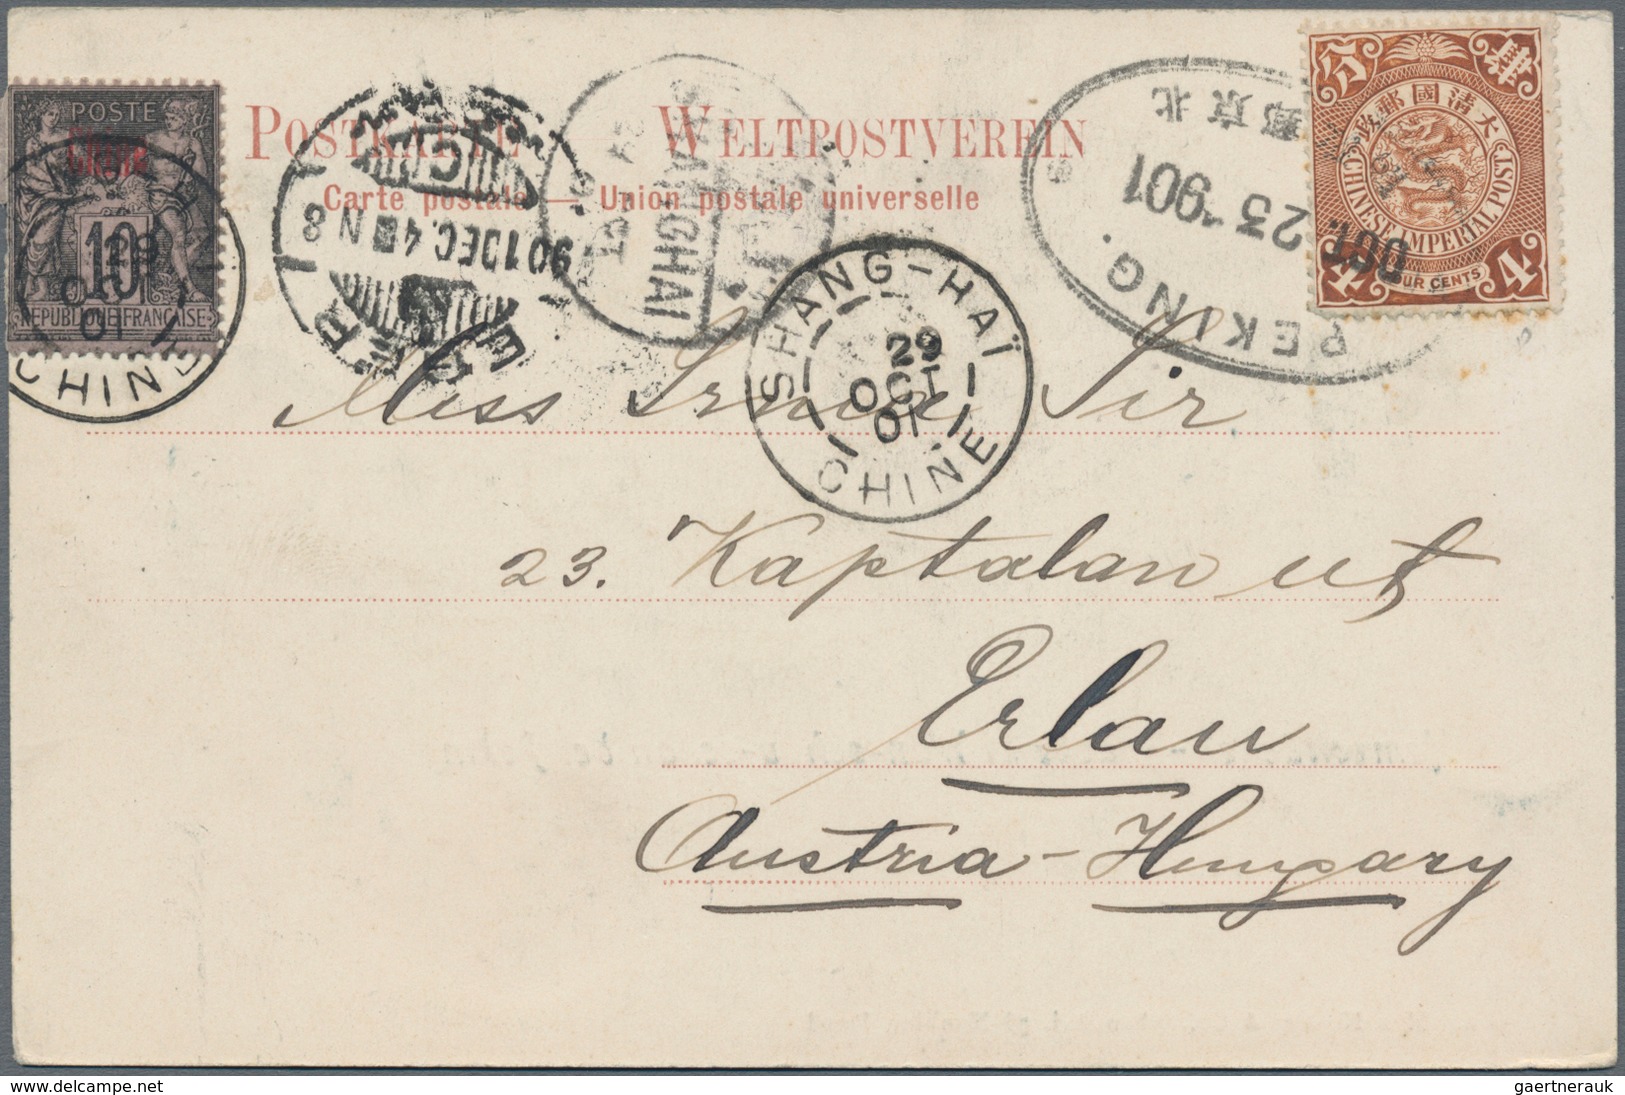 POSTKARTE — WELTPOSTVEREIN
Carte postale — Union postale universelle
POSTE
Chine
10
REPUBLIQUE FRANÇAISE
29
OCT
01
CHINE
EGER
901 DEC. 4 N 8
SHANGHAI
OCT
SHANG-HAÏ
29
OCT
01
CHINE
北京郵
PEKING.
OCT. 23 1901
大清國郵政
CHINESE IMPERIAL POST
4 FOUR CENTS 4
Miss Irnia Sir
23. Kaptalan ut
Erlau
Austria-Hungary
www.delcampe.net
gaertnerauk